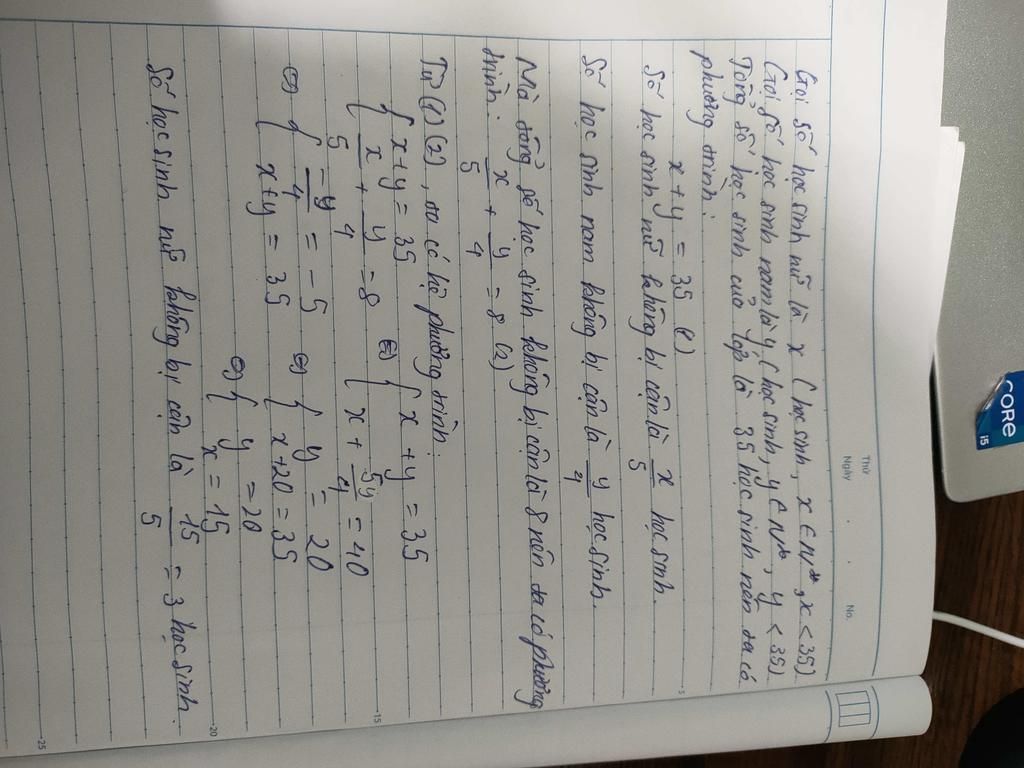 Thứ
Ngày
No.
Gọi số học sinh nữ là x (học sinh, x ∈ N*, x < 35)
Gọi số học sinh nam là y (học sinh, y ∈ N*, y < 35)
Tổng số học sinh của lớp là 35 học sinh nên ta có
phương trình:
x + y = 35 (1)
Số học sinh nữ không bị cận là x/5 học sinh.
Số học sinh nam không bị cận là y/4 học sinh.
Mà tổng số học sinh không bị cận là 8 nên ta có phương
trình: x/5 + y/4 = 8 (2)
Từ (1) (2), ta có hệ phương trình:
{ x + y = 35 ⇔ { x + y = 35
x/5 + y/4 = 8 x + 5y/4 = 40
⇔ { -y/4 = -5 ⇔ { y = 20
x + y = 35 x + 20 = 35
⇔ { y = 20
x = 15
Số học sinh nữ không bị cận là 15/5 = 3 học sinh.
5
15
20
25
CORE
i5